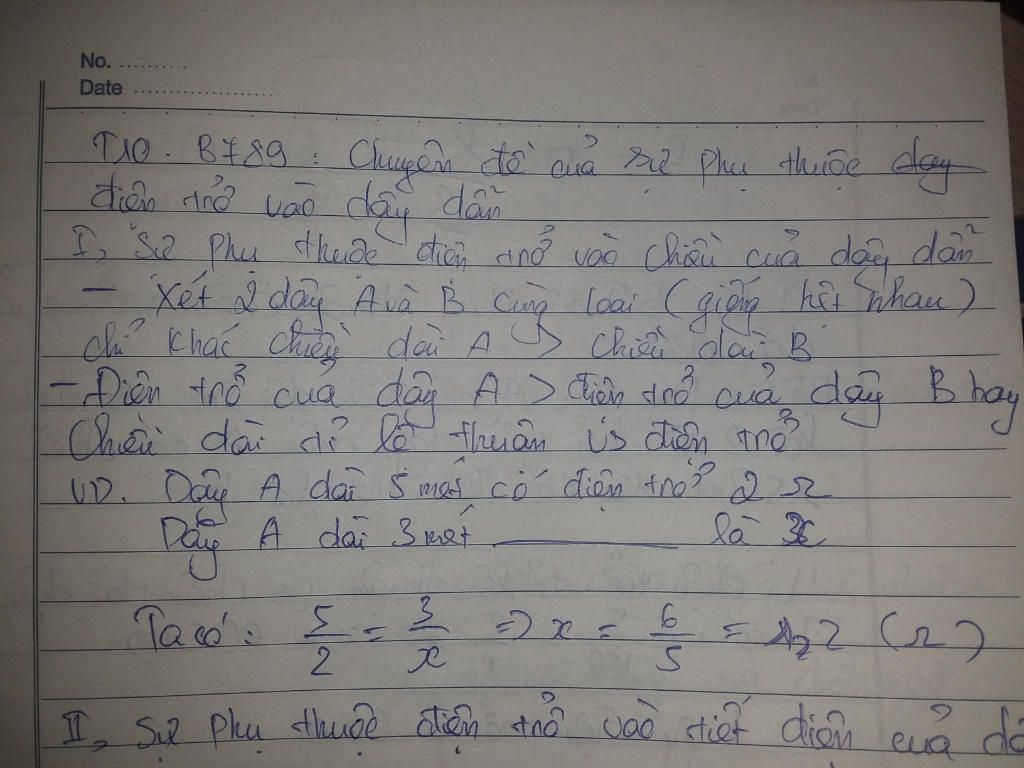 No. ..........
Date ......................
T10. B789: Chuyên đề của sự phụ thuộc
điện trở vào dây dẫn
I, Sự phụ thuộc điện trở vào chiều của dây dẫn
- Xét 2 dây A và B cùng loại (giống hệt nhau)
chỉ khác chiều dài A > chiều dài B
- Điện trở của dây A > điện trở của dây B hay
Chiều dài tỉ lệ thuận vs điện trở
VD. Dây A dài 5 mét có điện trở 2 Ω
Dây A dài 3 mét ———— là x
Ta có: 5/2 = 3/x => x = 6/5 = 1,2 (Ω)
II, Sự phụ thuộc điện trở vào tiết diện của